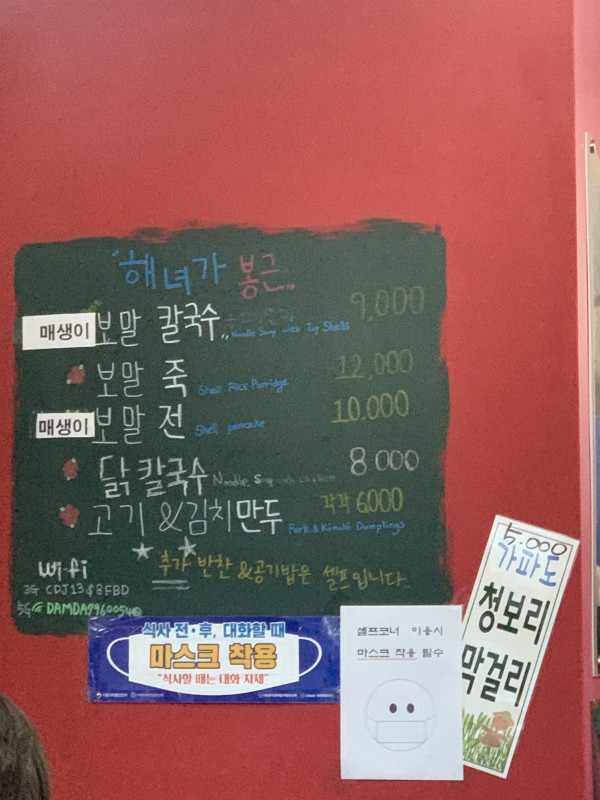 "해녀가 봉근"
매생이 보말 칼국수 Noodle Soup with Top Shells 9,000
보말 죽 Shell Rice Porridge 12,000
매생이 보말 전 Shell pancake 10,000
닭 칼국수 Noodle Soup with chicken 8.000
고기 & 김치만두 Pork & Kimchi Dumplings 각각 6,000
추가 반찬 & 공기밥은 셀프입니다.
Wi-fi
3G CDJ13$8FBD
5G
식사 전·후, 대화할 때
마스크 착용
"식사할 때는 대화 자제"
셀프코너 이용시
마스크 착용 필수
5.000
가파도
청보리
막걸리